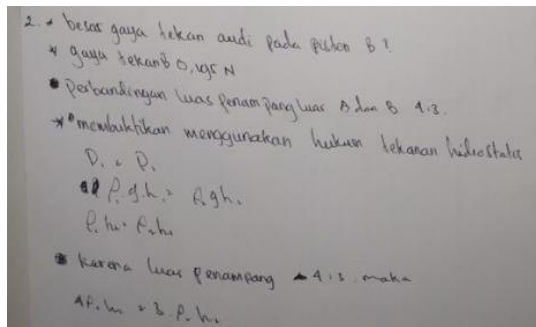 2. * besar gaya tekan andi pada piston B?
* gaya tekan B 0,195 N
• Perbandingan luas penampang luar A dan B 4:3.
* membuktikan menggunakan hukum tekanan hidrostatis
P₁ = P₂
ρ.g.h. = ρ.g.h.
ρ.h. = ρ.h.
• karena luas penampang 4:3 maka
4ρ.h. = 3.ρ.h.